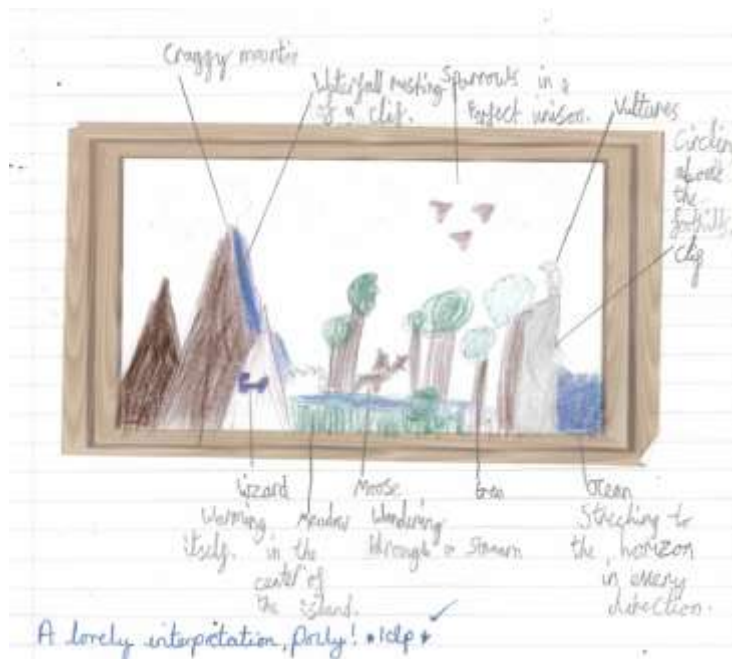 Craggy mountin
Waterfall rushing
of a clif.
Sparrows in a
Perfect unison.
Vultures
Circling
above
the
foothills
Clif
Lizard
Warming
itself.
Meadow
in the
center of
the island.
Moose
Wandering
through a stream
tree
Ocean
Streching to
the horizon
in every
direction.
A lovely interpretation, Polly! *1dp*